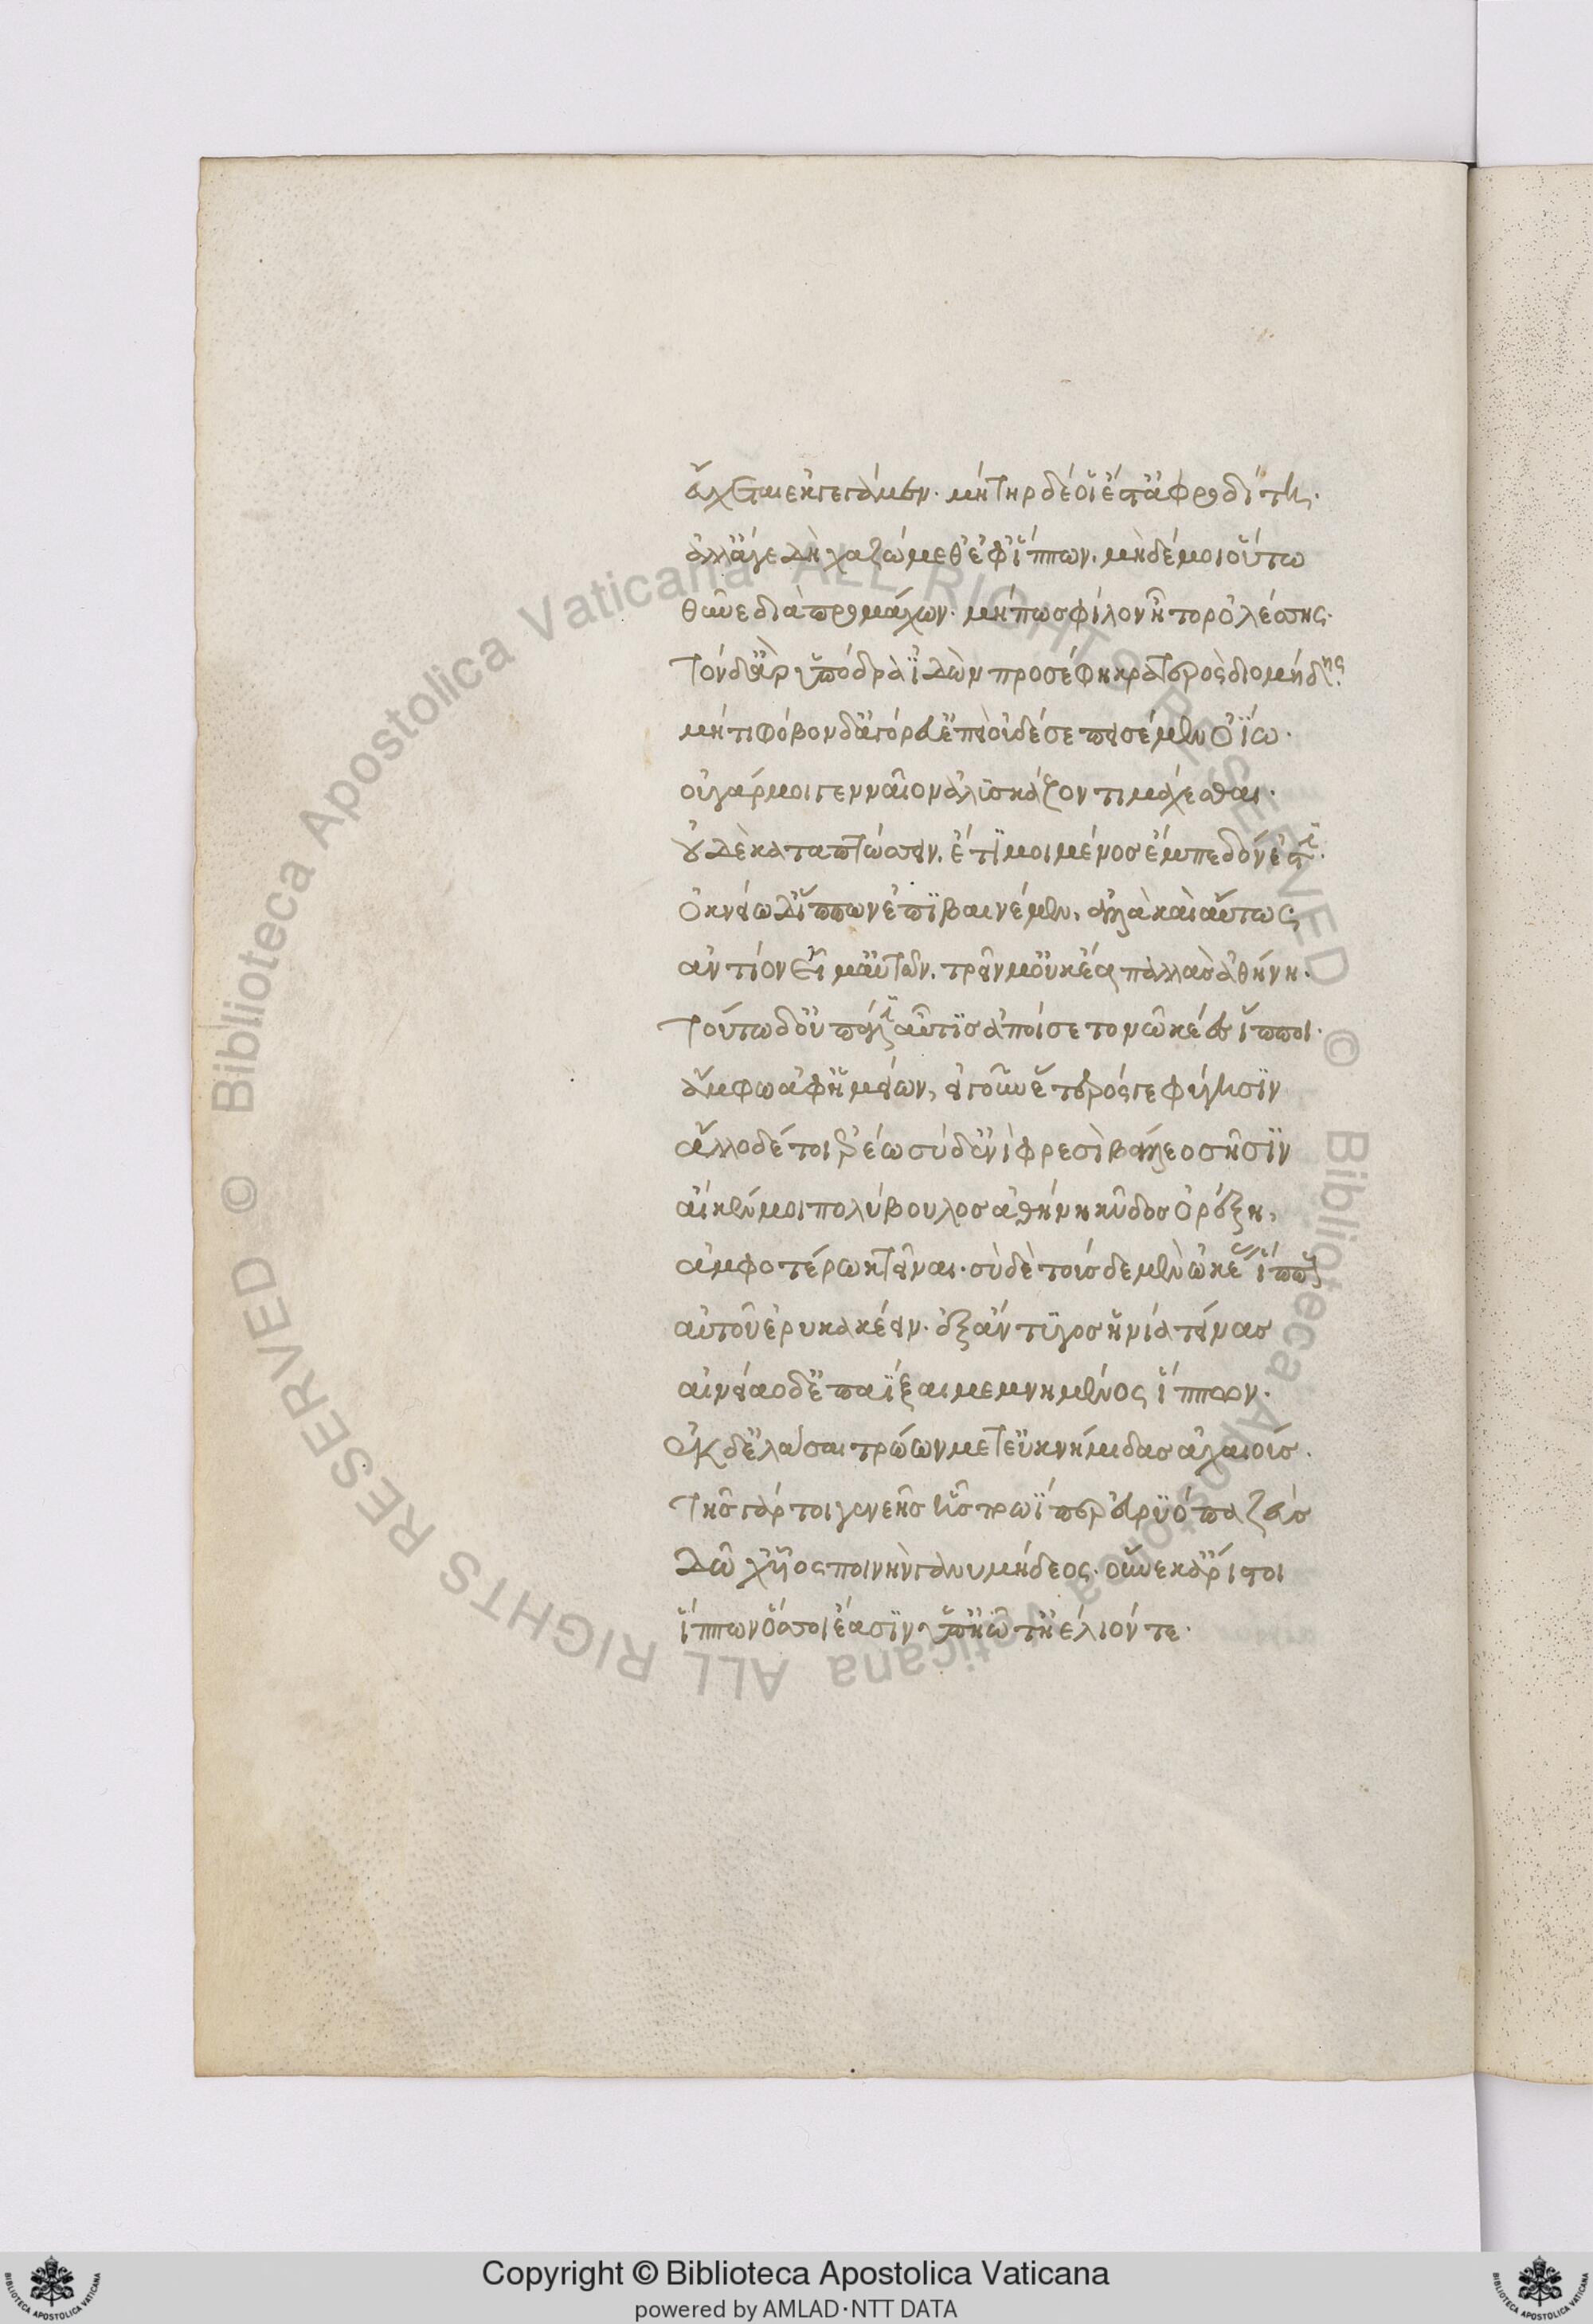 εὔχεται ἐκγεγάμεν· μήτηρ δέ οἵ ἐστ' ἀφροδίτη·
ἀλλ' ἄγε δὴ χαζώμεθ' ἐφ' ἵππων, μηδέ μοι οὕτω
θῦνε διὰ προμάχων· μή πως φίλον ἦτορ ὀλέσσης·
τὸν δ' ἄρ' ὑπόδρα ἰδὼν προσέφη κρατερὸς διομήδης·
μή τι φόβον δ' ἀγόρευ' ἐπεὶ οὐδέ σε πεισέμεν οἴω·
οὐ γάρ μοι γενναῖον ἀλυσκάζοντι μάχεσθαι·
οὐδὲ καταπτώσσειν. ἔτι μοι μένος ἔμπεδόν ἐστι·
ὀκνείω δ' ἵππων ἐπιβαινέμεν, ἀλλὰ καὶ αὔτως
ἀντίον εἶμ' αὐτῶν. τρεῖν μ' οὐκ ἐᾷ παλλὰς ἀθήνη·
τούτω δ' οὐ πάλιν αὖτις ἀποίσετον ὠκέες ἵπποι·
ἄμφω ἀφ' ἡμείων, εἴ γ' οὖν ἕτερός γε φύγησιν
ἄλλο δέ τοι ἐρέω σὺ δ' ἐνὶ φρεσὶ βάλλεο σῇσιν
αἴ κέν μοι πολύβουλος ἀθήνη κῦδος ὀρέξη,
ἀμφοτέρω κτεῖναι· σὺ δὲ τούσδε μὲν ὠκέας ἵππους
αὐτοῦ ἐρυκακέειν· ἐξ ἄντυγος ἡνία τείνας
αἰνείαο δ' ἐπαΐξαι μεμνημένος ἵππων·
ἐκ δ' ἐλάσαι τρώων μετ' εὐκνήμιδας ἀχαιούς·
τῆς γάρ τοι γενεῆς ἧς τρωΐ περ εὐρύοπα ζεὺς
δῶχ' υἷος ποινὴν γανυμήδεος· οὕνεκ' ἄριστοι
ἵππων ὅσσοι ἔασιν ὑπ' ἠῶ τ' ἠέλιόν τε·
Copyright © Biblioteca Apostolica Vaticana
powered by AMLAD·NTT DATA